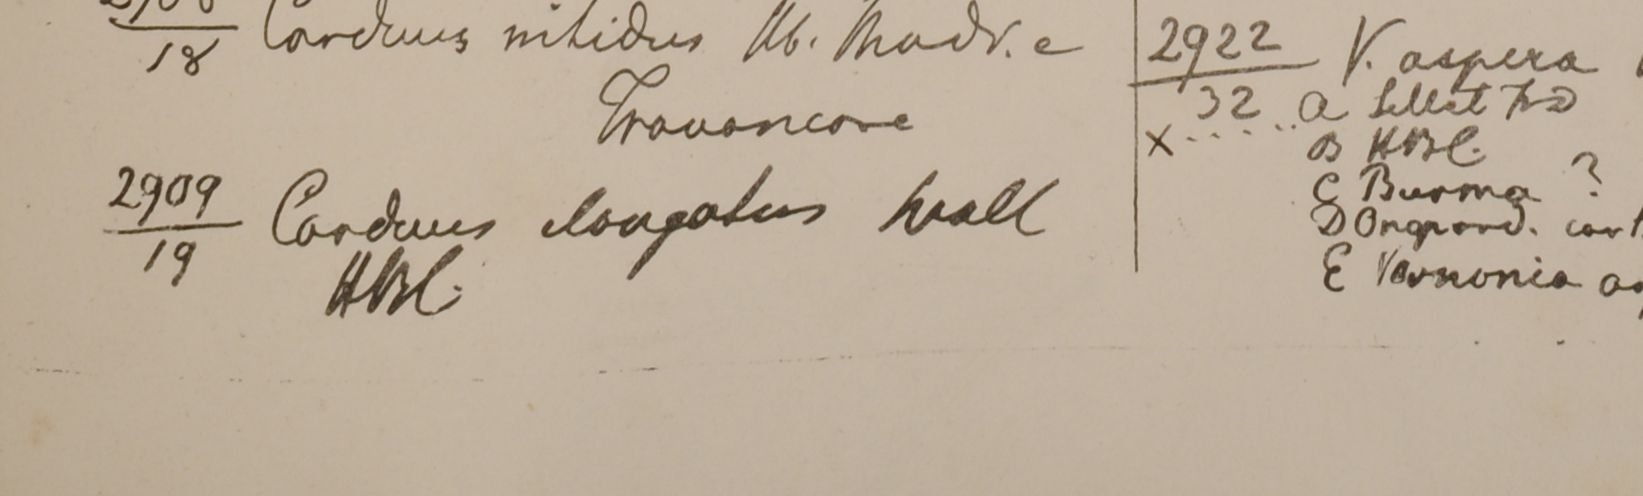 18 Carduus nitidus Hb. Madr. e
Travancore
2909 Carduus elongatus Wall
19
HBC.
2922 V. aspera
32 a Sillet FD
x ...... B HBC.
C Burma ?
D Ongrand.
E Vernonia